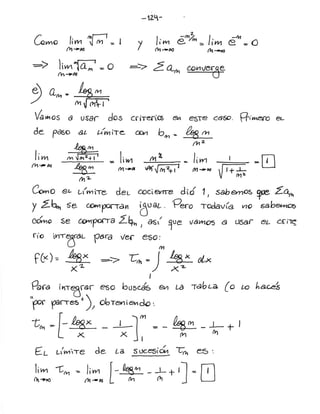 -124-
Como lim ᵐ√m = 1 y lim e^(-m²/m) = lim e^(-m) = 0
m→∞ m→∞ m→∞
=> lim ᵐ√aₘ = 0 => Σaₘ converge
m→∞
e) aₘ = log m / (m√(m²+1))
Vamos a usar dos criterios en este caso. Primero el
de paso al límite con bₘ = log m / m²
lim (log m / (m√(m²+1))) / (log m / m²) = lim m² / (m√(m²+1)) = lim 1 / √(1 + 1/m²) = 1
m→∞ m→∞ m→∞
Como el límite del cociente dió 1, sabemos que Σaₘ
y Σbₘ se comportan igual. Pero todavía no sabemos
cómo se comporta Σbₘ, así que vamos a usar el crite
rio integral para ver eso:
f(x) = log x / x² => Tₘ = ∫₁ᵐ log x / x² dx
Para integrar eso buscás en la tabla (o lo hacés
"por partes"), obteniendo:
tₘ = [- log x / x - 1/x]₁ᵐ = - log m / m - 1/m + 1
El límite de la sucesión Tₘ es:
lim Tₘ = lim [- log m / m - 1/m + 1] = 1
m→∞ m→∞